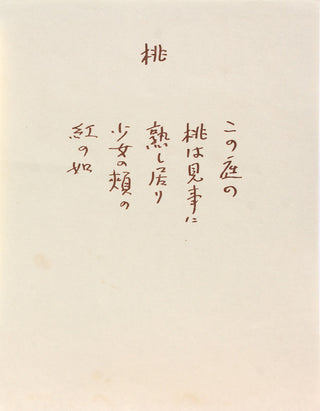 桃
この庭の
桃は見事に
熟し居り
少女の頬の
紅の如